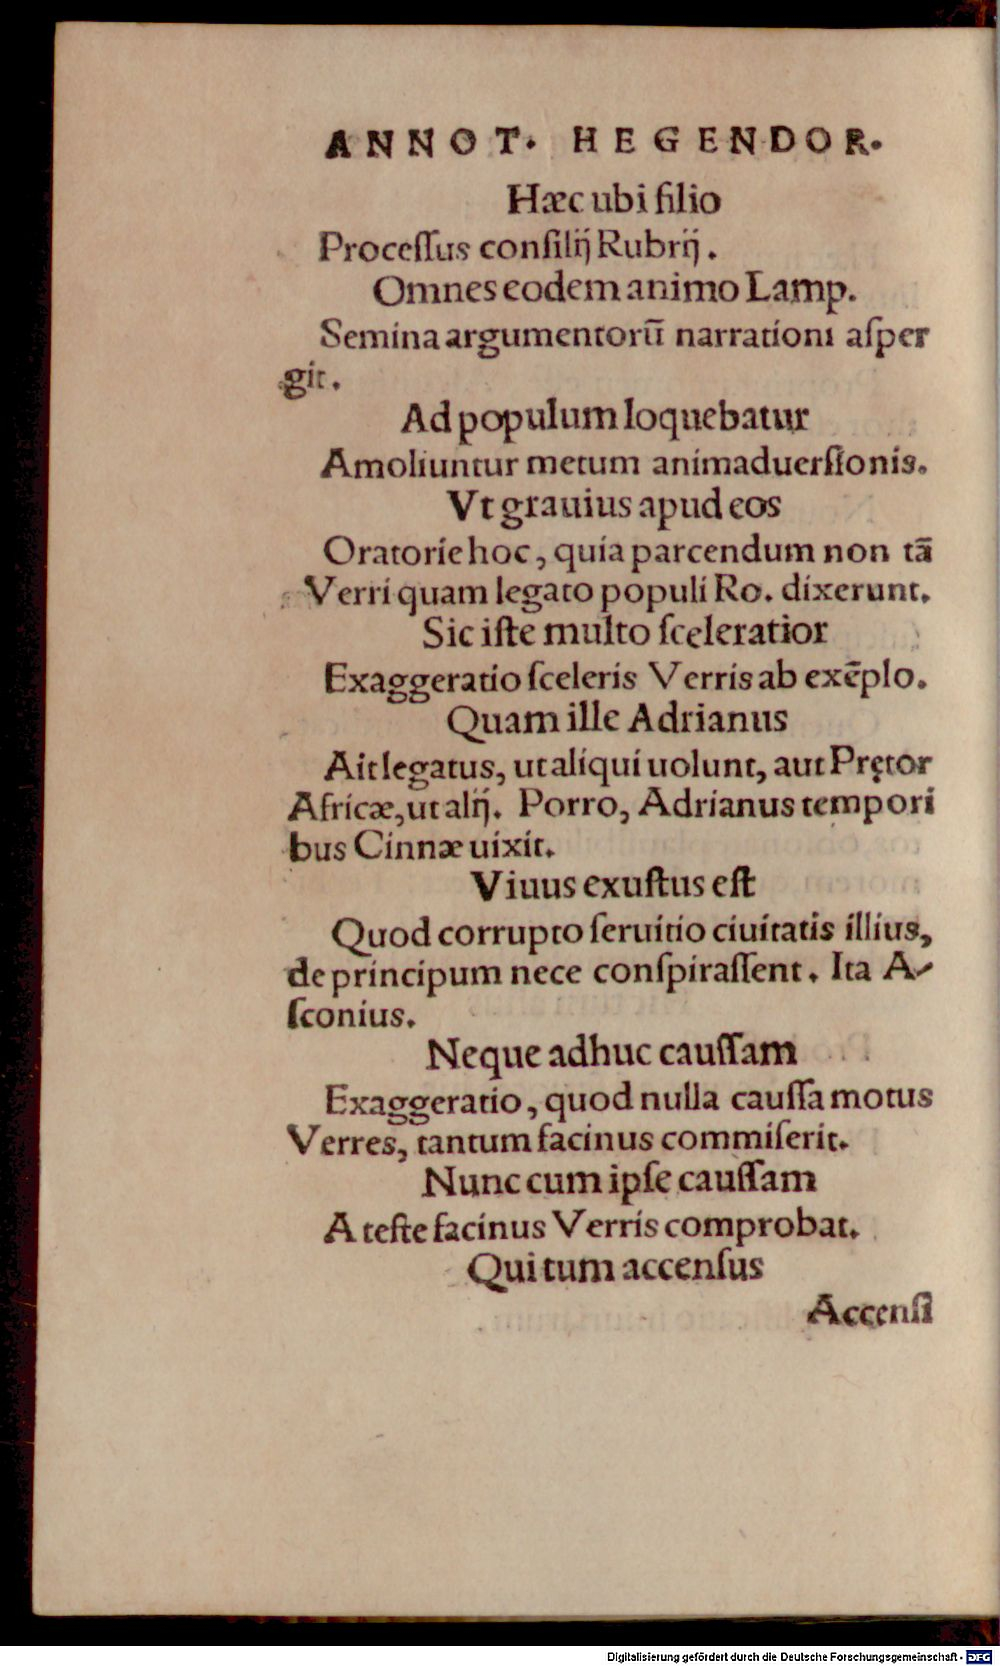 ANNOT. HEGENDOR.
Hæc ubi filio
Proceſſus conſilij Rubrij.
Omnes eodem animo Lamp.
Semina argumentorū narrationi aſper
git.
Ad populum loquebatur
Amoliuntur metum animaduerſionis.
Vt grauius apud eos
Oratorie hoc, quia parcendum non tā
Verri quam legato populi Ro. dixerunt.
Sic iſte multo ſceleratior
Exaggeratio ſceleris Verris ab exēplo.
Quam ille Adrianus
Ait legatus, ut aliqui uolunt, aut Prętor
Africæ, ut alij. Porro, Adrianus tempori
bus Cinnæ uixit.
Viuus exuſtus eſt
Quod corrupto ſeruitio ciuitatis illius,
de principum nece conſpiraſſent. Ita A-
ſconius.
Neque adhuc cauſſam
Exaggeratio, quod nulla cauſſa motus
Verres, tantum facinus commiſerit.
Nunc cum ipſe cauſſam
A teſte facinus Verris comprobat.
Qui tum accenſus
Accenſi
Digitalisierung gefördert durch die Deutsche Forschungsgemeinschaft - DFG